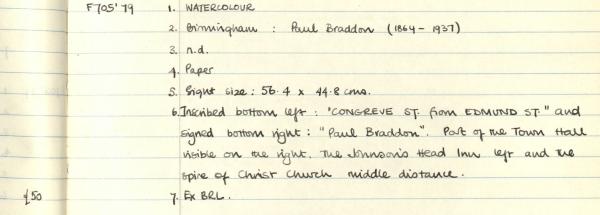 F705'79 1. WATERCOLOUR
2. Birmingham : Paul Braddon (1864 - 1937)
3. n.d.
4. Paper
5. Sight size : 56.4 x 44.8 cms.
6. Inscribed bottom left : "CONGREVE ST. from EDMUND ST." and
signed bottom right : "Paul Braddon". Part of the Town Hall
visible on the right. The Johnson's Head Inn left and the
spire of Christ Church middle distance.
£50 7. Ex BRL.